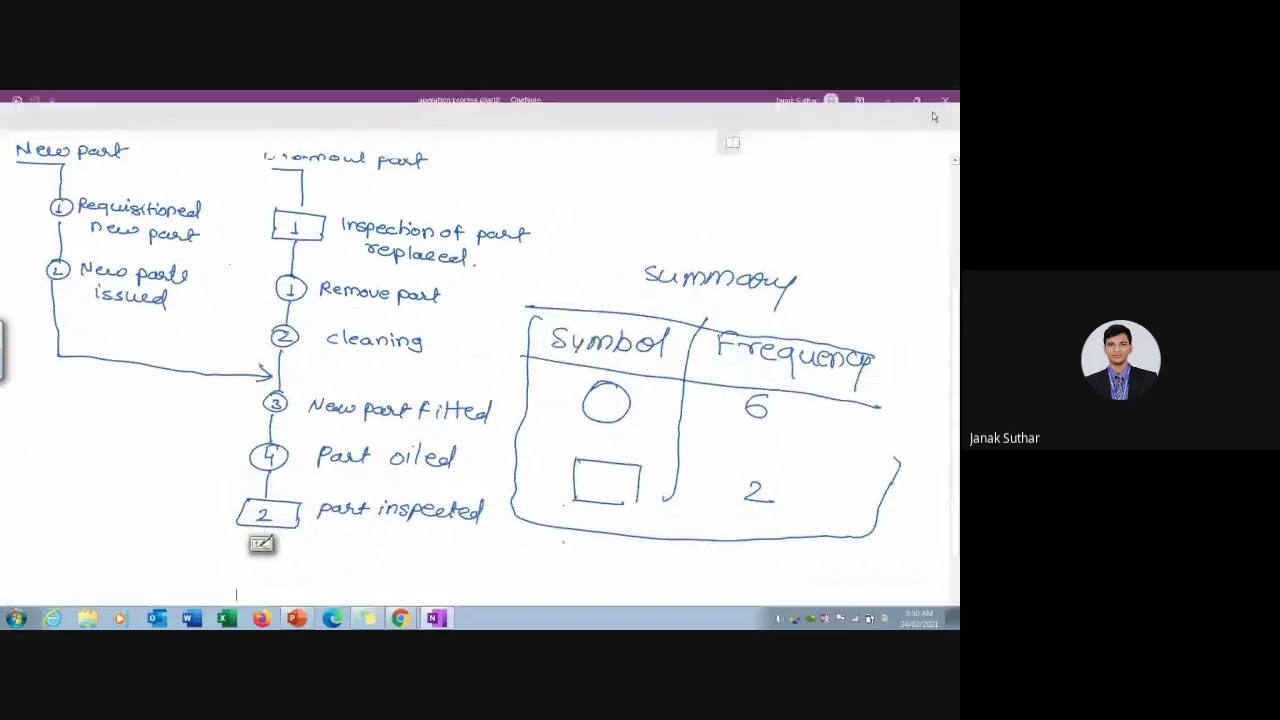 operation process chart - OneNote
Janak Suthar
New part
part
1 Requisitioned
new part
2 New parts
issued
1 Inspection of part
replaced.
1 Remove part
2 cleaning
3 New part fitted
4 Part oiled
2 part inspected
summary
Symbol Frequency
6
2
Janak Suthar
9:50 AM
24/02/2021